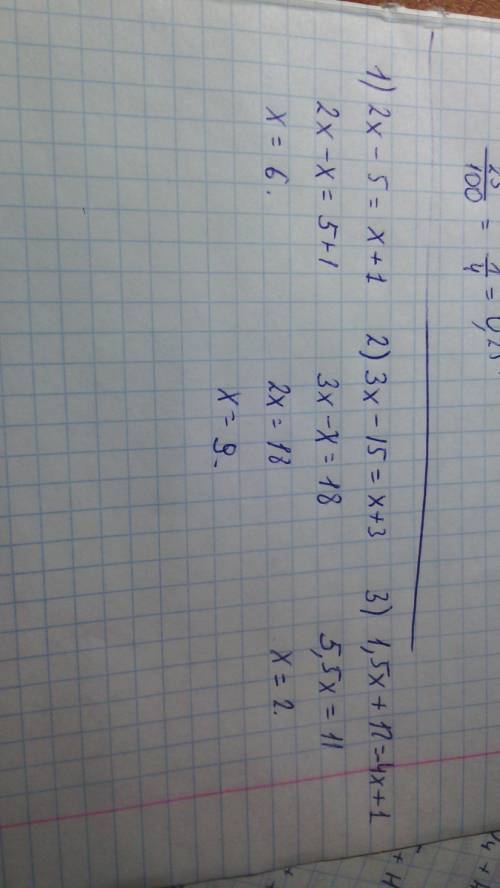 25/100 = 1/4 = 0,25
1) 2x - 5 = x + 1
2x - x = 5+1
x = 6.
2) 3x - 15 = x+3
3x - x = 18
2x = 18
x = 9.
3) 1,5x + 12 = -4x + 1
5,5x = 11
x = 2.